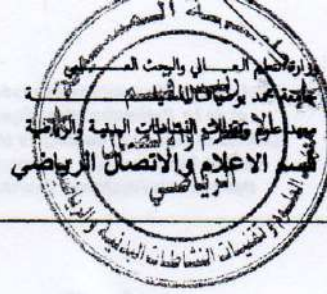 وزارة التعليم العـــالي والبحث العـــــلمي
جامعة محمد بوضياف المسيلـــــــة
معهد علوم وتقنيات النشاطات البدنية والرياضية
قسم الاعلام والاتصال الرياضي
العلوم وتقنيات النشاطات البدنية والرياضية